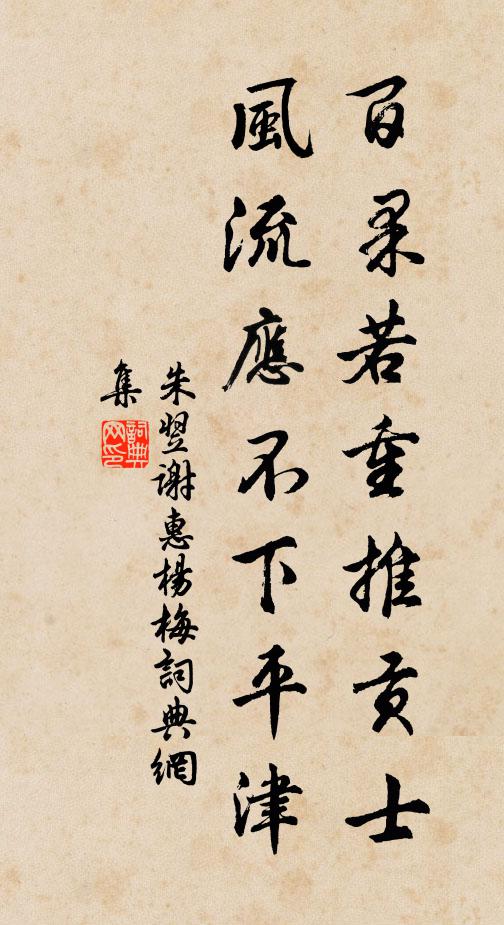 百果若重推贡士
風流應不下平津
朱翌謝惠楊梅詞典網
集
詞典
网印